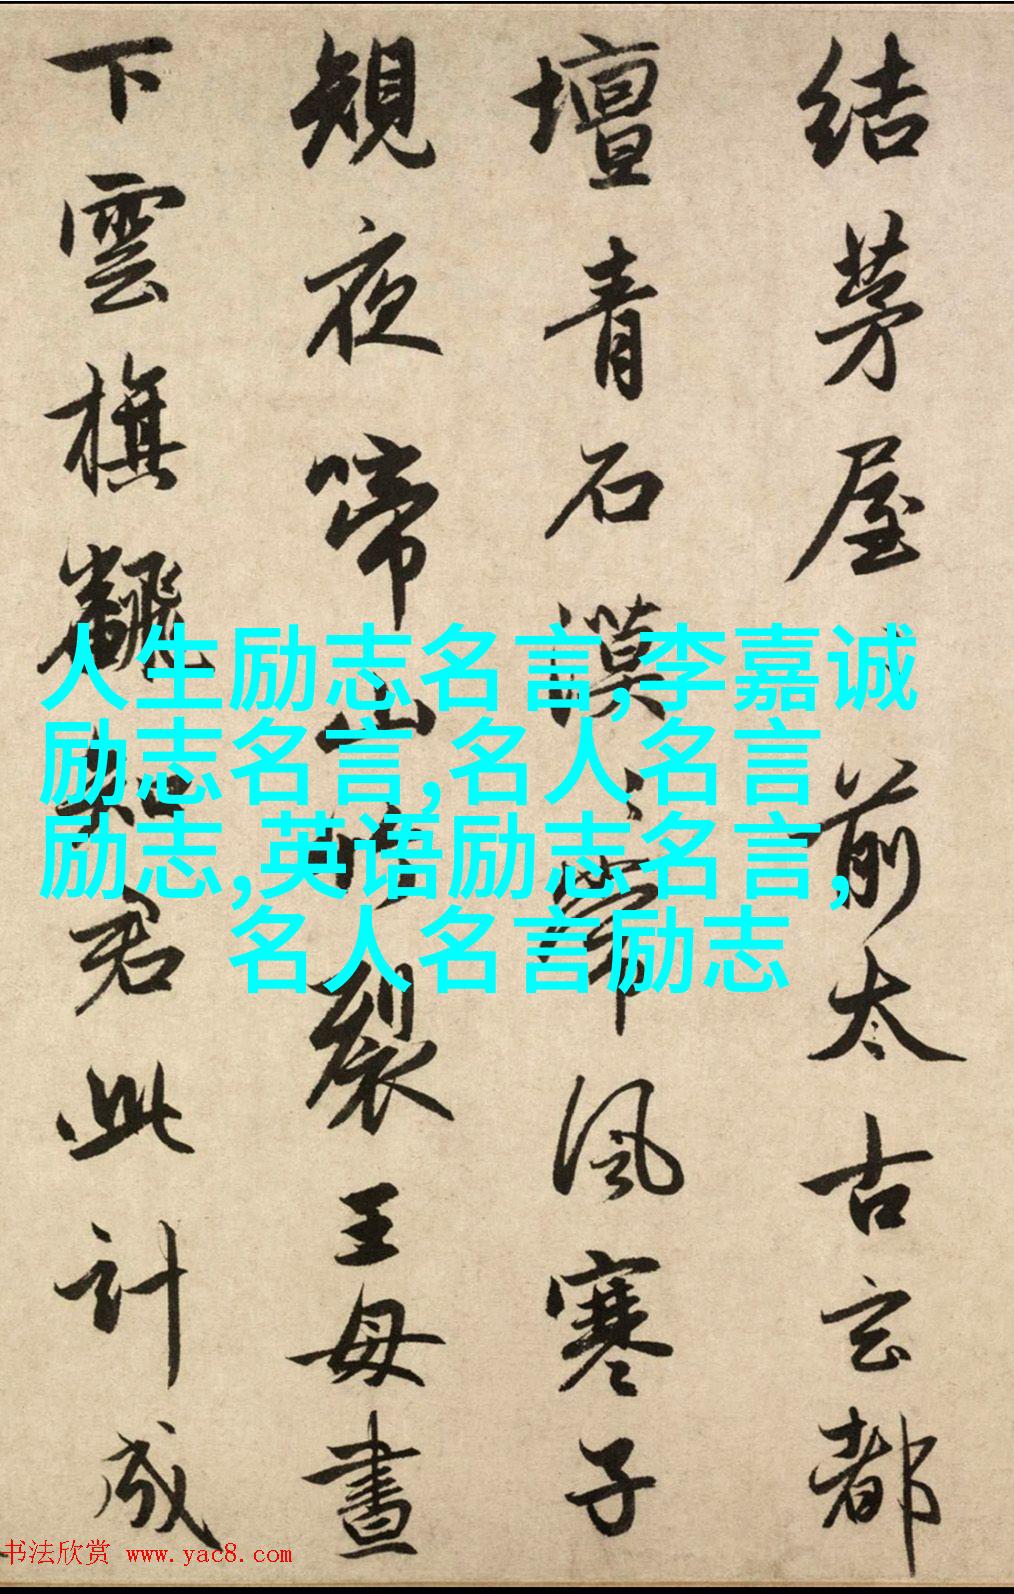 結茅屋前太古玄都
壇青石漠〻常風寒子
規夜啼山竹裂王母晝
下雲旗飜知君此計成
人生励志名言,李嘉诚
励志名言,名人名言
励志,英语励志名言,
名人名言励志
书法欣赏 www.yac8.com